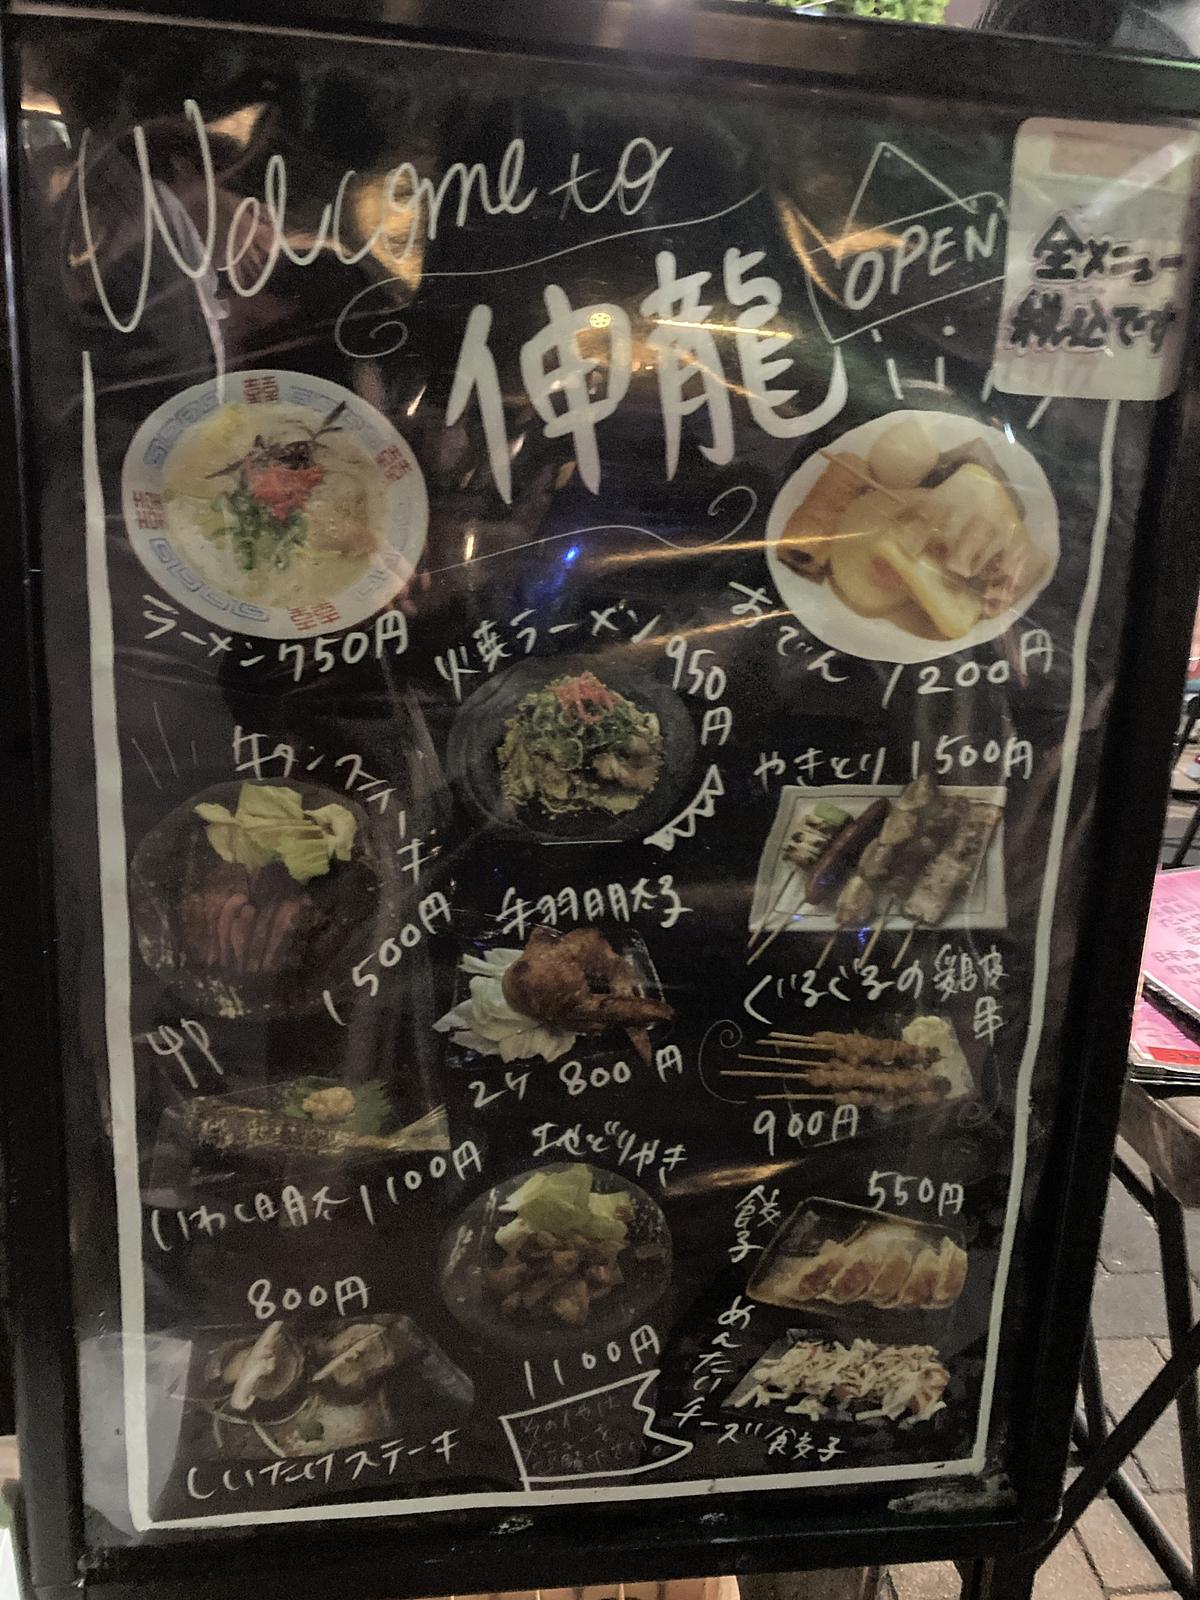 Welcome to
伸龍
OPEN
全メニュー
税込です
ラーメン 750円
おでん 1200円
ラーメン 950円
牛タンステーキ
1500円
やきとり 1500円
手羽明太子
2ケ 800円
ぐるぐるの鶏皮串
900円
いわし明太 1100円
1100円
餃子
550円
800円
しいたけステーキ
めんたいチーズ餃子